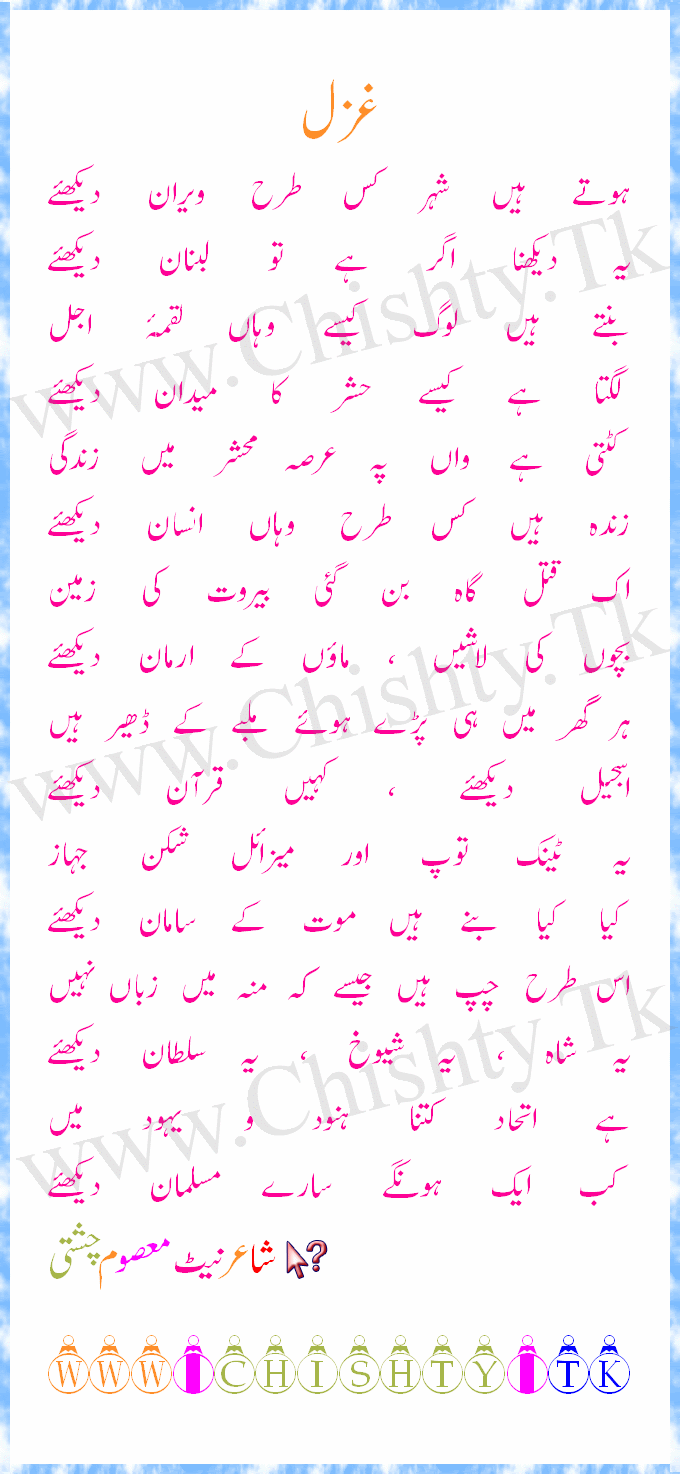 غزل
ہوتے ہیں شہر کس طرح ویران دیکھئے
یہ دیکھنا اگر ہے تو لبنان دیکھئے
بنتے ہیں لوگ کیسے وہاں لقمۂ اجل
لگتا ہے کیسے حشر کا میدان دیکھئے
کٹتی ہے واں پہ عرصہ محشر میں زندگی
زندہ ہیں کس طرح وہاں انسان دیکھئے
اک قتل گاہ بن گئی بیروت کی زمین
بچوں کی لاشیں ، ماؤں کے ارمان دیکھئے
ہر گھر میں ہی پڑے ہوئے ملبے کے ڈھیر ہیں
انجیل دیکھئے ، کہیں قرآن دیکھئے
یہ ٹینک توپ اور میزائل شکن جہاز
کیا کیا بنے ہیں موت کے سامان دیکھئے
اس طرح چپ ہیں جیسے کہ منہ میں زباں نہیں
یہ شاہ ، یہ شیوخ ، یہ سلطان دیکھئے
ہے اتحاد کتنا ہنود و یہود میں
کب ایک ہونگے سارے مسلمان دیکھئے
? شاعر نیٹ معصوم چشتی
WWW.CHISHTY.TK
www.Chishty.Tk
www.Chishty.Tk
www.Chishty.Tk